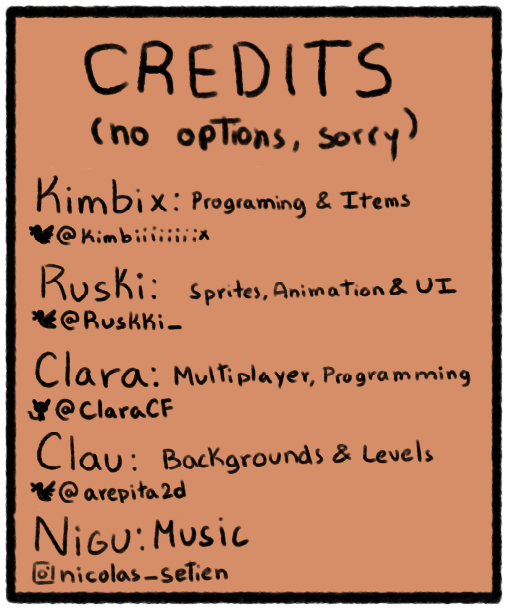 CREDITS
(no options, sorry)
Kimbix: Programing & Items
@Kimbiiiiiiiix
Ruski: Sprites, Animation & UI
@Ruskki_
Clara: Multiplayer, Programming
@ClaraCF
Clau: Backgrounds & Levels
@arepita2d
Nigu: Music
nicolas_setien